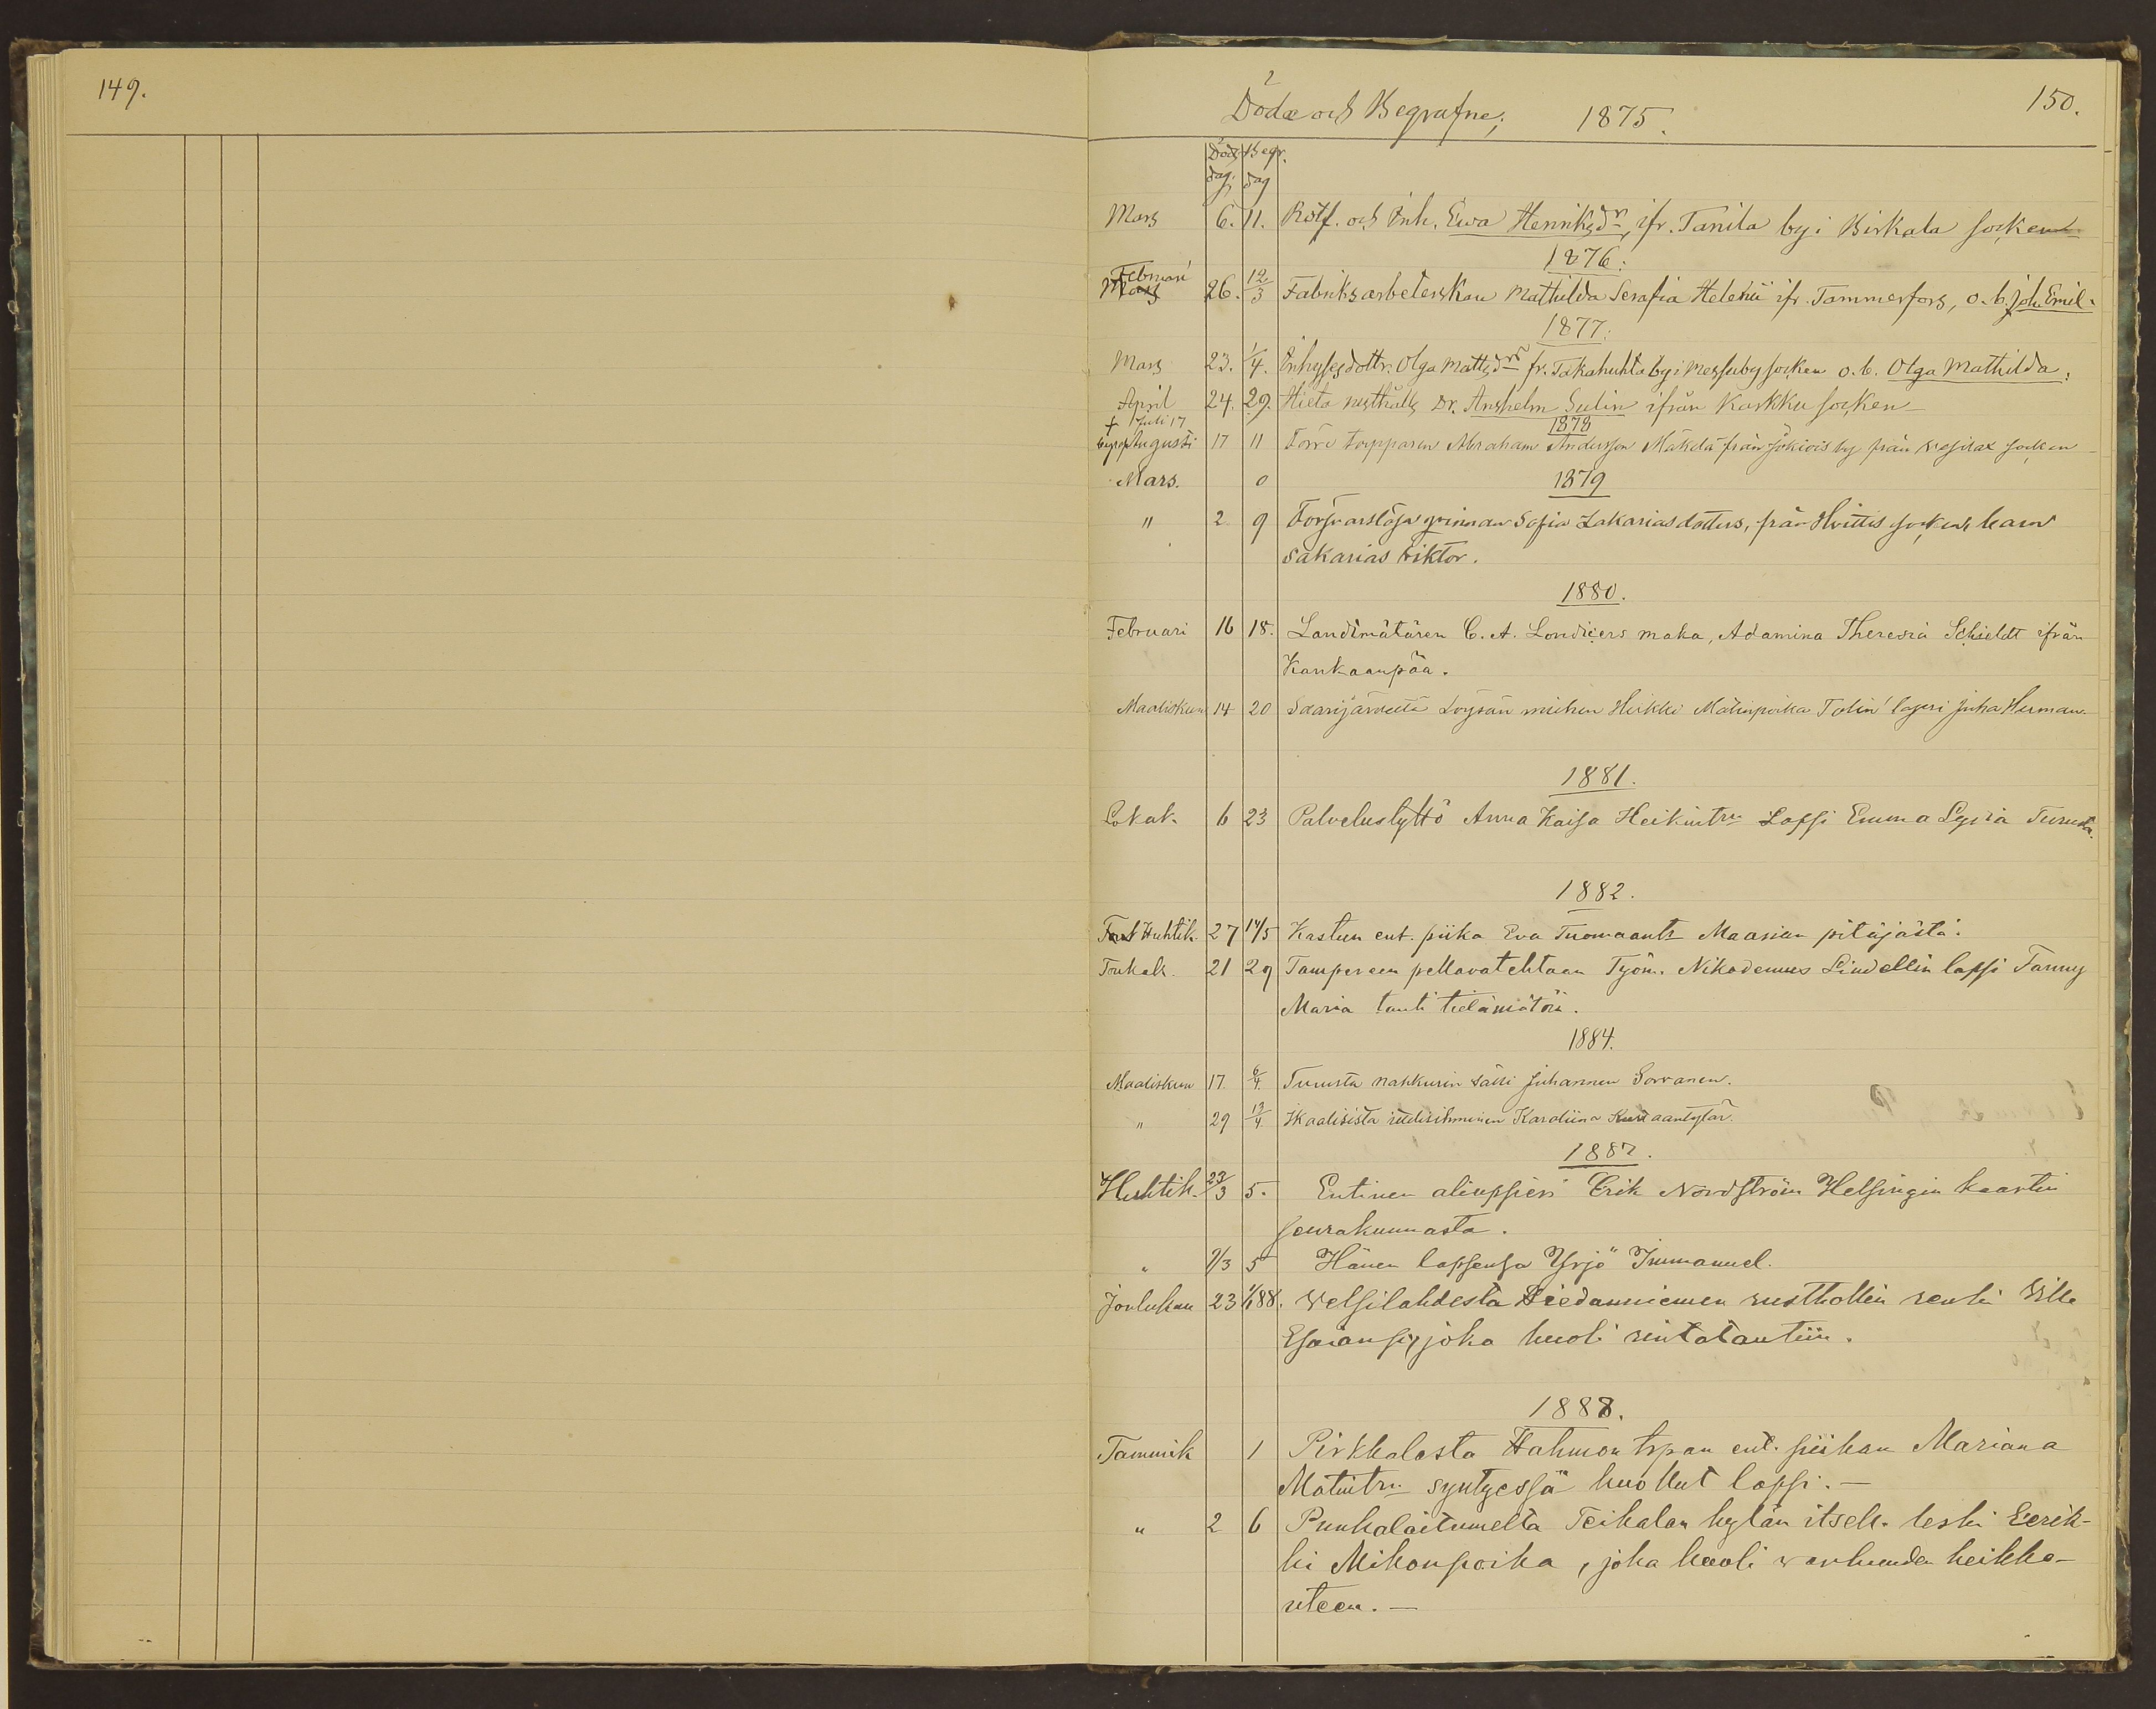 149.
150.
Döde och Begrafne; 1875.
Död. Begr.
dag. dag
Mars 6. 11. Rotf. och Inh. Ewa Henriksdr, ifr. Tanila by i Birkala socken
1876.
Februari
Mars 26. 12/3 Fabriksarbeterskan Mathilda Serafia Heleni ifr. Tammerfors, o. b. Joh. Emil.
1877.
Mars 23. 1/4. Inhysesdottr. Olga Mattsdrs fr. Takahuhta by i Messuby socken o. b. Olga Mathilda.
April 24. 29. Hieta rusthålls Dr. Anshelm Sulin ifrån Karkku socken
† Juli 17 1878
begrop Augusti 17 11 Förre torpparen Abraham Andersson Mäkelä från Jokiois by från Vesilax socken
Mars. 0 1879
" 2 9 Försvarslösa qvinnan Sofia Zakariasdotters, från Hvittis socken, barn
Sakarias Viktor.
1880.
Februari 16 18. Landtmätaren C. A. Londicers maka, Adamina Theresia Schieldt ifrån
Kankaanpää.
Maaliskuu 14 20 Saarijärveltä Löysän miehen Heikki Matinpoika Tolin' lapsi Juha Herman.
1881.
Lokak. 6 23 Palvelustyttö Anna Kaisa Heikintr Lapsi Emma Lyria Turusta.
1882.
Huhtik. 27 14/5 Kastun ent. piika Eva Tuomaantr Maarian pitäjästä.
Toukok. 21 29 Tampereen pellavatehtaan Työm. Nikodemus Lindellin lapsi Fanny
Maria tauti tietämätön.
1884.
Maaliskuu 17. 6/4. Turusta nahkurin sälli Juhannen Sorvanen.
" 29 13/4 Ikaalisista itellisihminen Karoliina aantytär.
1887.
Huhtik. 23/3 5. Entinen aliupsieri Erik Nordström Helsingin kaartin
seurakunnasta.
" 9/3 5 Hänen lapsensa Yrjö Immanuel.
Joulukuu 23 1/1 88. Vesilahdesta Hiedanniemen rusthollin renki Wille
Esaiansp, joka kuoli rintatautiin.
1888.
Tammik 1 Pirkkalasta Hahmon trpan ent. piikan Mariana
Matintr syntyessä kuollut lapsi. —
" 2 6 Punkalaitumelta Teikalan kylän itsell. leski Eerik-
ki Mikonpoika, joka kuoli vanhuuden heikko-
uteen. —